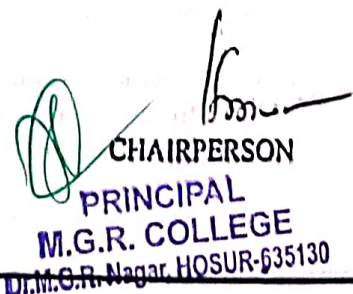 CHAIRPERSON
PRINCIPAL
M.G.R. COLLEGE
Dr.M.G.R. Nagar, HOSUR-635130